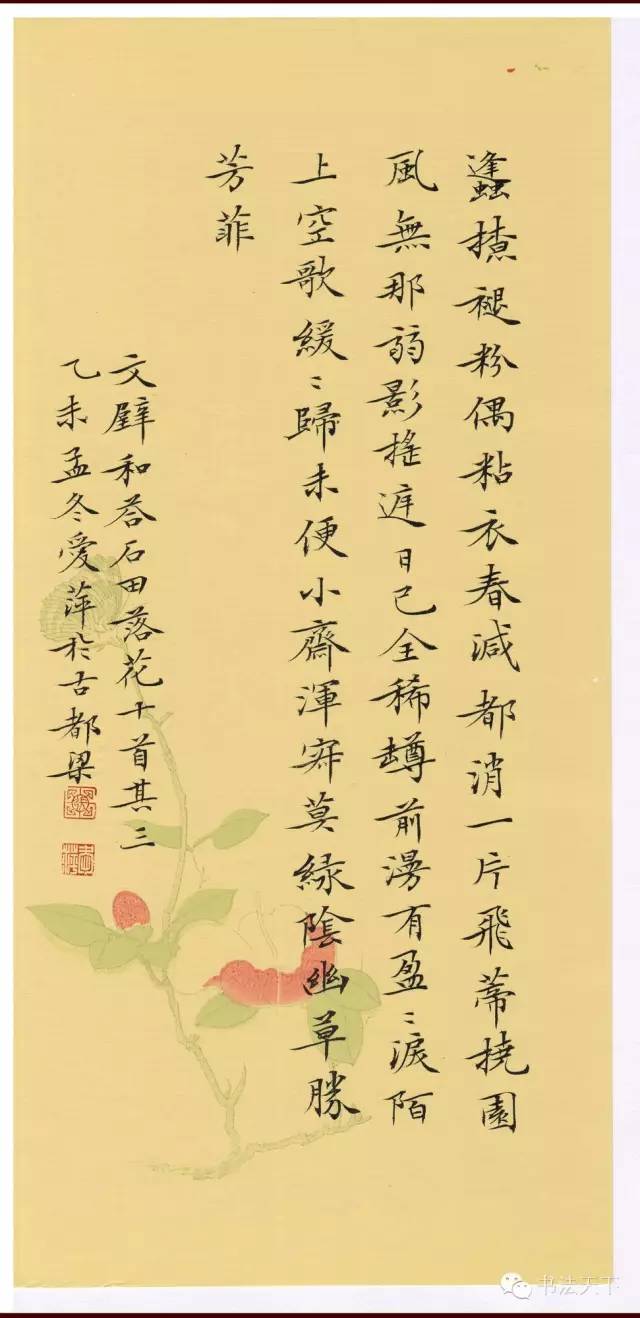 蠭撩褪粉偶粘衣春減都消一片飛蔕撓園
風無那弱影搖遅日已全稀罇前漫有盈〻淚陌
上空歌緩〻歸未便小齋渾寂莫緑陰幽草勝
芳菲
文壁和答石田落花十首其三
乙未孟冬愛萍於古都梁
书法天下